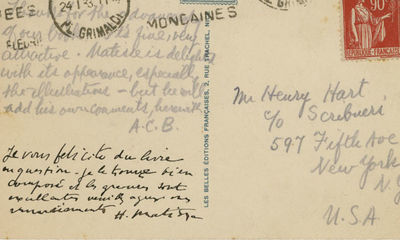 24 1-3
EES
LE GRIMALDI
MONCAINES
FLEURIE
90c
for the advance
of your book. It is fine, very
attractive. Matisse is delighted
with its appearance, especially
the illustrations — but he will
add his own comments, herewith
A.C.B.
Je vous félicite du livre
en question. je le trouve bien
composé et les gravures sont
excellentes veuillez agréer mes
remerciements H. Matisse
LES BELLES ÉDITIONS FRANÇAISES, 2, RUE TRACHEL, N
Mr Henry Hart
c/o Scribners
597 Fifth Ave
New York
N.Y
U.S.A